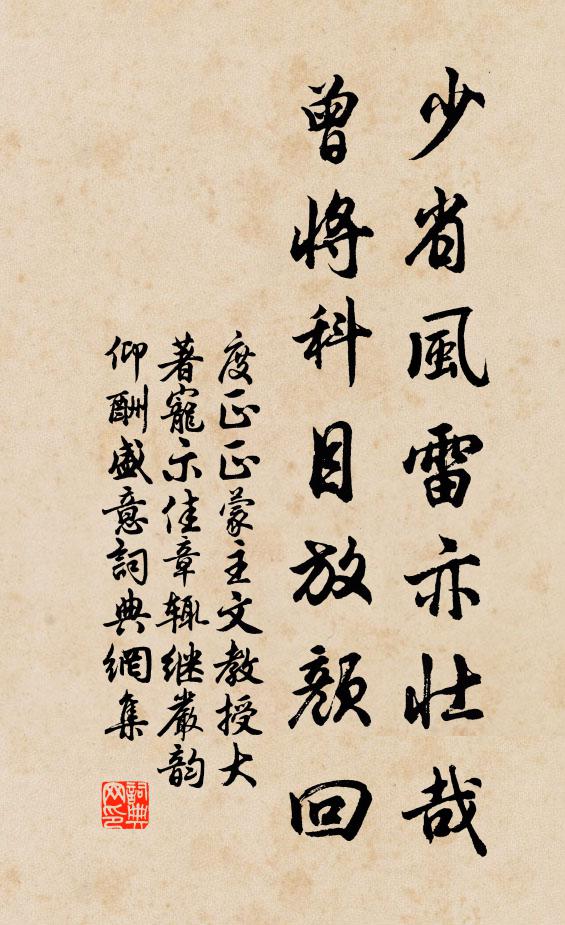 少省風雷亦壯哉
曾將科目放顏回
度正正蒙主文教授大
著寵示佳章輒继嚴韵
仰酬盛意詞典網集
詞典網印